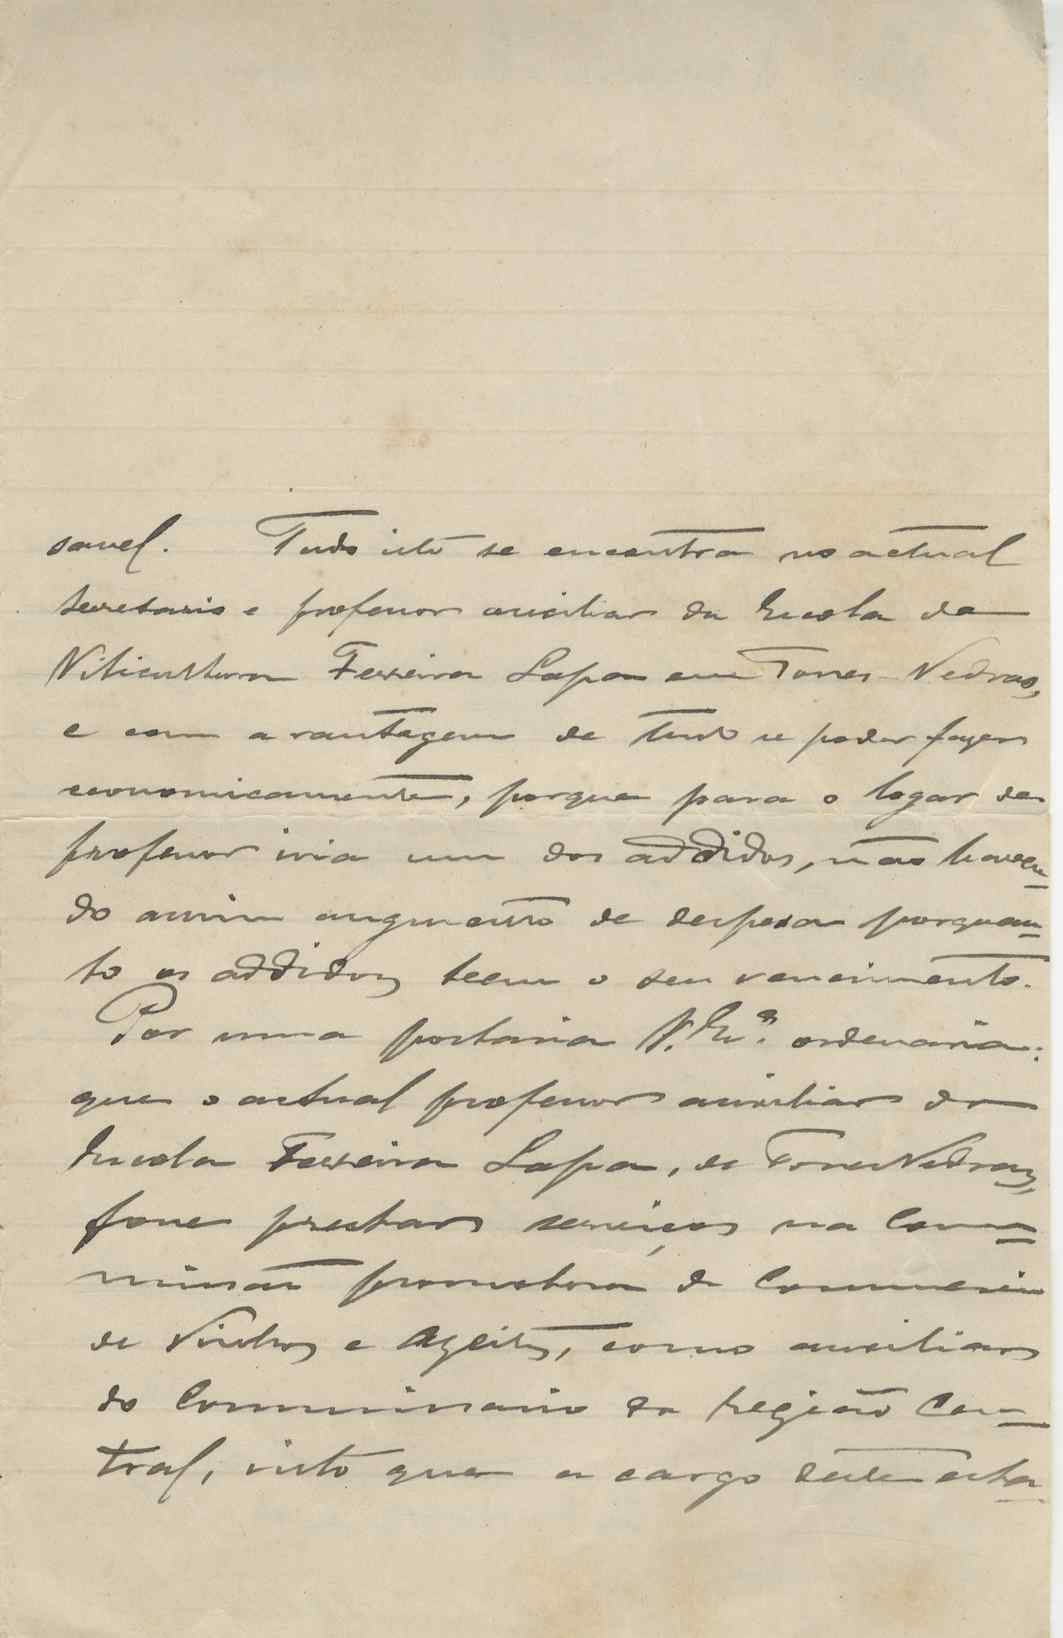 savel. Tudo isto se encontra no actual
secretario e professor auxiliar da Escola de
Viticultura Ferreira Lapa em Torres Vedras,
e com a vantagem de tudo se poder fazer
economicamente, porque para o logar de
professor iria um dos addidos, não haven-
do assim augmento de despesa porquan-
to os addidos teem o seu vencimento.
Por uma portaria V. Ex.ª ordenaria:
que o actual professor auxiliar da
Escola Ferreira Lapa, de Torres Vedras,
fosse prestar serviços na Com-
missão promotora do Commercio
de Vinhos e Azeites, como auxiliar
do Commissario da Região Cen-
tral, visto que a cargo deste esta-